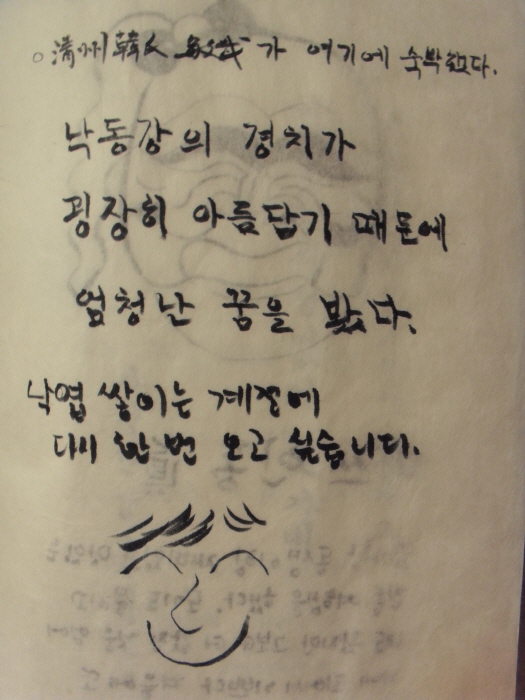 。清州韓氏 敏哉가 여기에 숙박했다.
낙동강의 경치가
굉장히 아름답기 때문에
엄청난 꿈을 봤다.
낙엽 쌓이는 계절에
다시 한 번 오고 싶습니다.